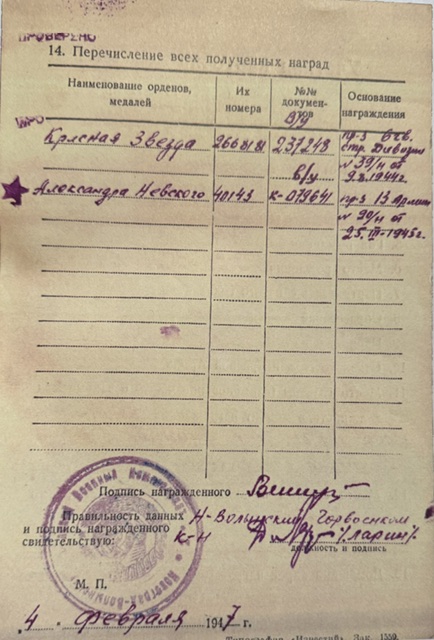 ПРОВЕРЕНО
14. Перечисление всех полученных наград
Наименование орденов, медалей
Их номера
№№ докумен-
Основание награждения
Красная Звезда 2668181 237248 пр-з 6 гв.
стр. Дивизии
в/у № 39/н от
9.8.1944г.
Александра Невского 40143 к-079641 пр-з 13 Армии
№ 90/н от
25.III-1945г.
Подпись награжденного
Правильность данных Н-Волынский Горвоенком
и подпись награжденного
свидетельствую: к-н /Ларин/
должность и подпись
М. П.
4 февраля 1947 г.
Типография «Известий» Зак 1559.